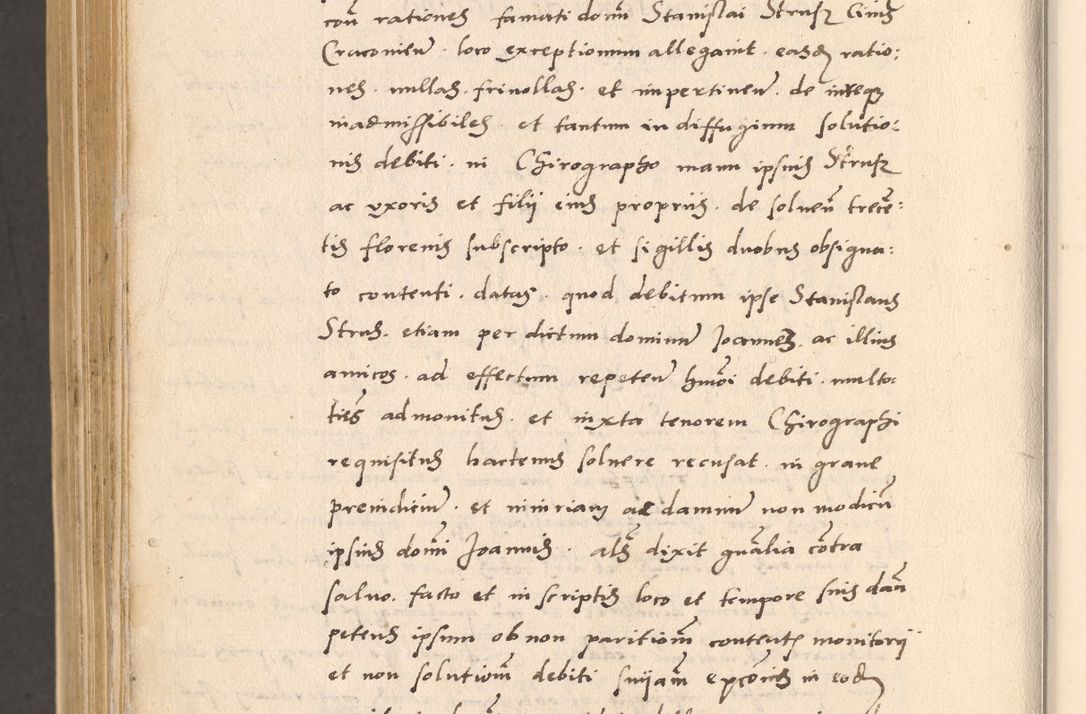 con rationes famati domi Stanislai Strusz Civis
Craconien . loco exceptionum allegavit . easdem ratio:
nes . nullas . frivollas . et impertinen . de
inadmissibiles et tantum in diffugium solutio:
nis debiti . in Chirographo manu ipsius Strusz
ac uxoris et filij eius propriis . de solven trece:
tis florenis subscripto . et sigillis duobus obsigna:
to contenti . datus . quod debitum ipse Stanislaus
Strus . etiam per dictum dominum Joannes . ac illius
amicos . ad effectum repeten hmoi debiti . multo:
ties admonitus . et iuxta tenorem Chirographi
requisitus hactenus solvere recusat . in grave
preiudicium . et iniuriam ac damnum non modicum
ipsius domi Joannis . als dixit gnalia contra
salvo . facto et in scriptis loco et tempore suis dan
petens ipsum ob non paritiom contentor monitorij
et non solutiom debiti snijam expcois in eodem